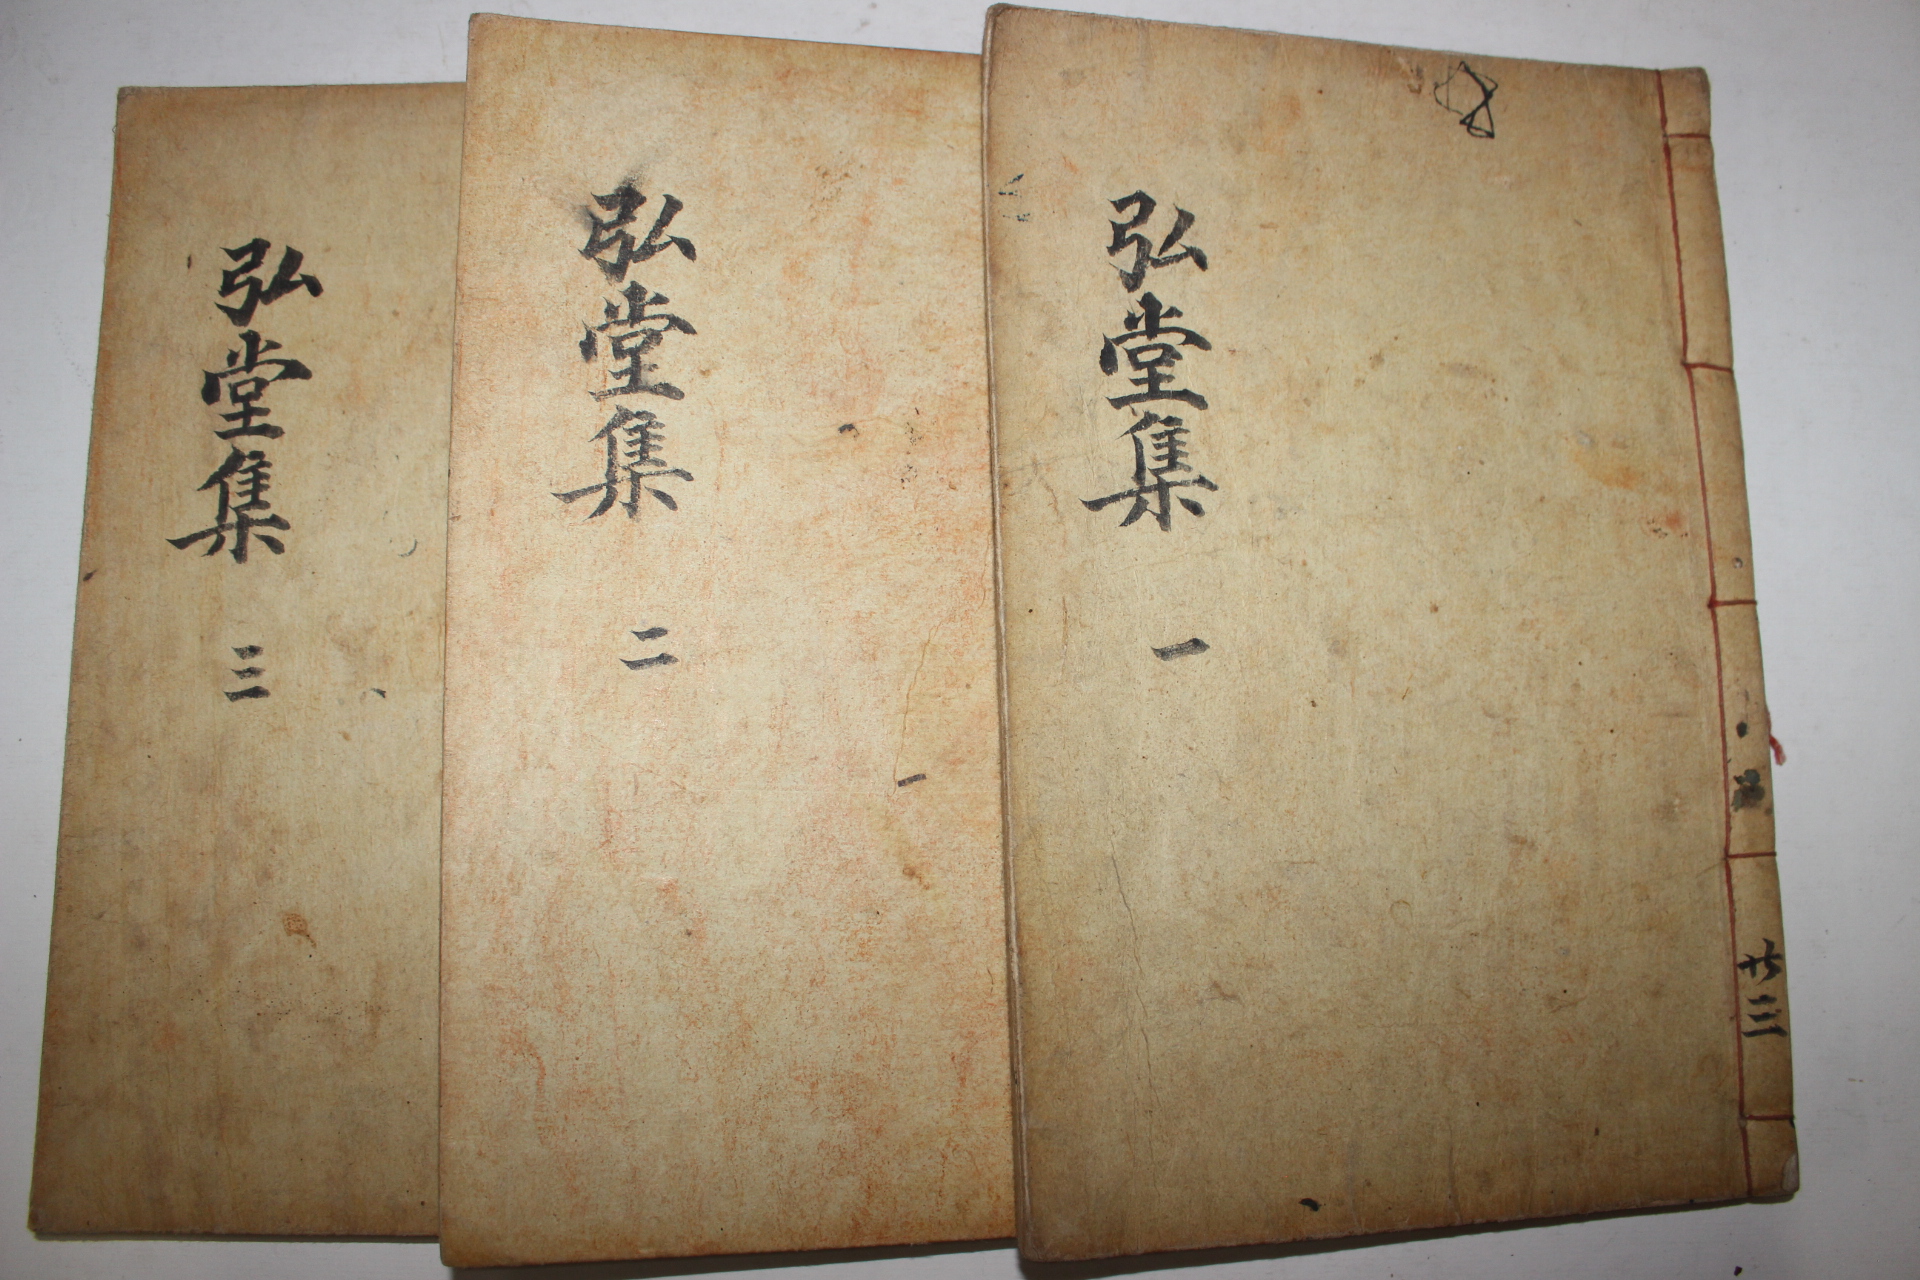 弘堂集 一
弘堂集 二
弘堂集 三
廿三